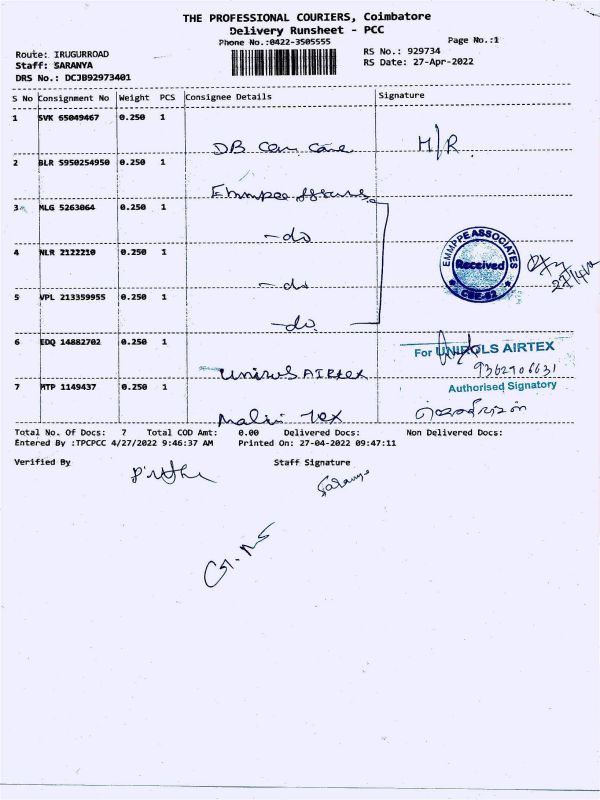 THE PROFESSIONAL COURIERS, Coimbatore
Delivery Runsheet - PCC
Phone No.:0422-3505555
Page No.:1
Route: IRUGURROAD
RS No.: 929734
Staff: SARANYA
RS Date: 27-Apr-2022
DRS No.: DCJB92973401
S No Consignment No Weight PCS Consignee Details Signature
1 SVK 65049467 0.250 1
DB Cem Care M/R
2 BLR 5950254950 0.250 1
3 MLG 5263064 0.250 1
-do
4 NLR 2122210 0.250 1
EMMPPE ASSOCIATES
Received
CBE-62
-do
5 VPL 213359955 0.250 1
-do
6 EDQ 14882702 0.250 1
For UNIROLS AIRTEX
Unirols AIRtex
9362906631
7 MTP 1149437 0.250 1
Authorised Signatory
Malin Tex
Total No. Of Docs: 7 Total COD Amt: 0.00 Delivered Docs: Non Delivered Docs:
Entered By :TPCPCC 4/27/2022 9:46:37 AM Printed On: 27-04-2022 09:47:11
Verified By Staff Signature
Saranya